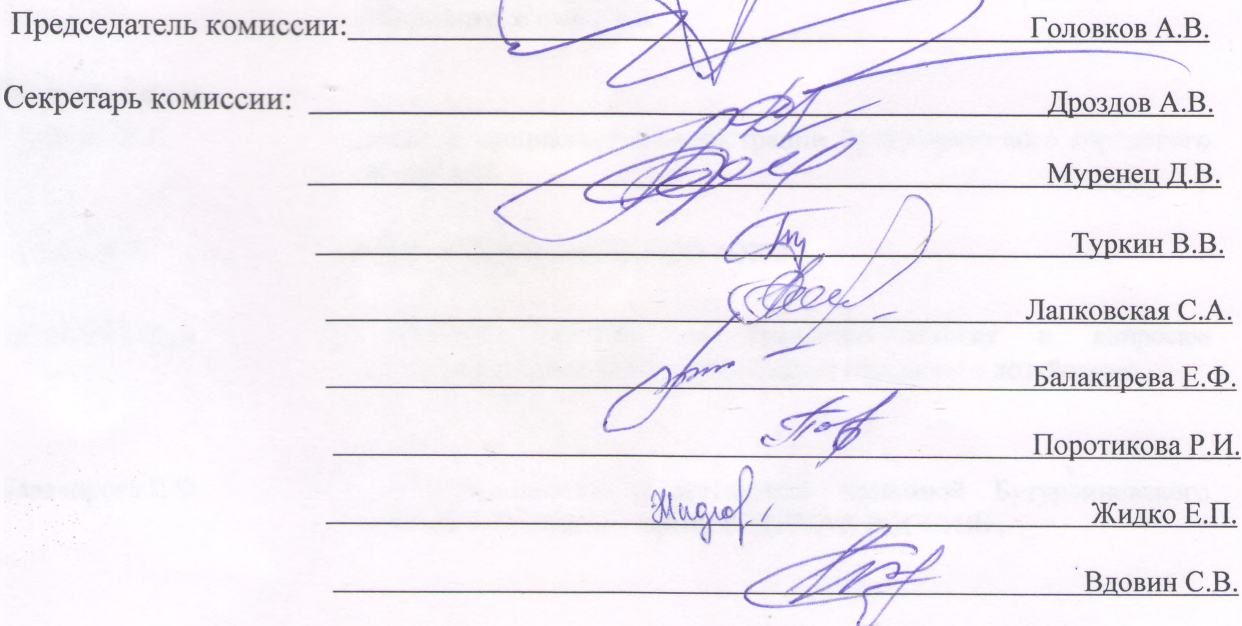 Председатель комиссии: Головков А.В.
Секретарь комиссии: Дроздов А.В.
Муренец Д.В.
Туркин В.В.
Лапковская С.А.
Балакирева Е.Ф.
Поротикова Р.И.
Жидко Е.П.
Вдовин С.В.